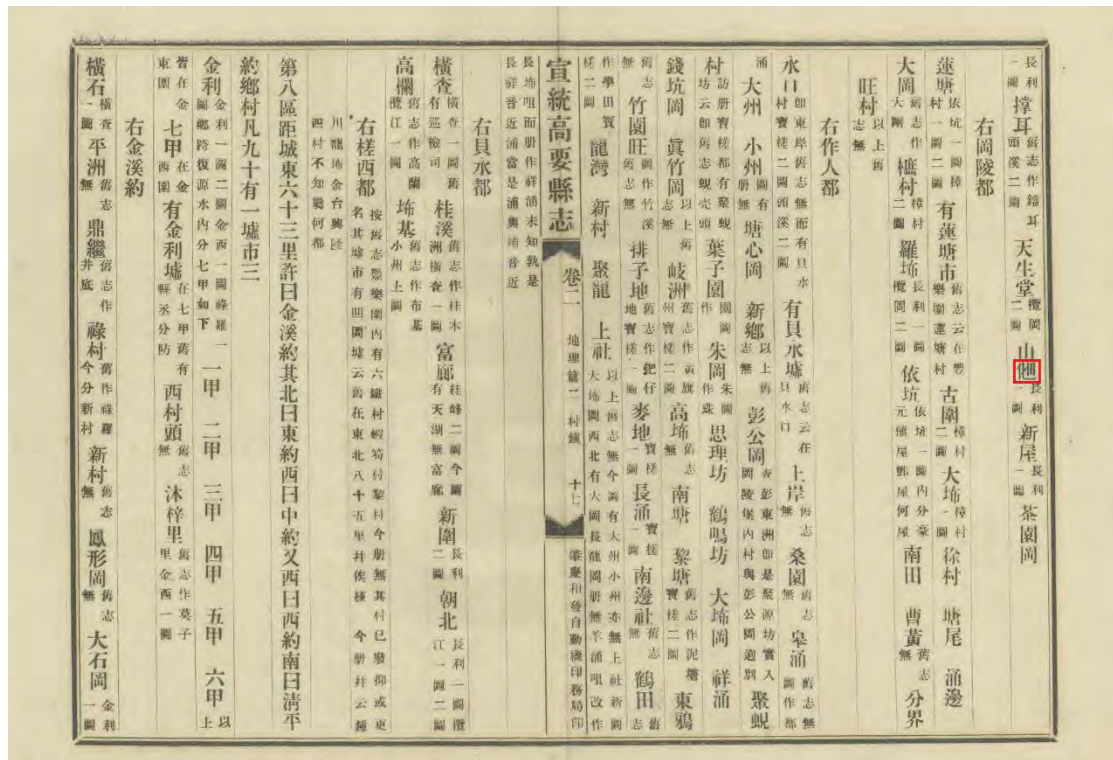 長利一圖撑耳舊志作錯耳頭溪二圖天生堂欖岡二圖山長利一圖新屋長利一圖茶園岡
右岡陵都
蓮塘依坑一圖樟村一圖二圖有蓮塘市舊志云在豐樂圍蓮塘村古圍樟村二圖大㘵樟村一圖徐村塘尾涌邊
大岡舊志作大剛樵村樟村二圖羅㘵長利一圖欖岡二圖依坑依坑一圖內分豪元傾屋鄧屋何屋南田曹黃舊志無分界
旺村以上舊志無
右作人都
水口即東岸舊志無而有貝水村寶槎二圖頭溪二圖有貝水墟舊志云在貝水口上岸舊志無桑園舊志無皋涌舊志無圖作都
涌大州小州圖有册無塘心岡新鄉以上舊志無彭公岡查彭東洲即是聚源坊實入岡陵堡內村與彭公岡逈別聚蜆
村訪册寶槎都有聚蜆坊云即舊志蜆壳頭葉子園園圖作朱岡朱圖作珠思理坊鶴鳴坊大㘵岡祥涌
錢坑岡眞竹岡以上舊志無岐洲舊志作黃旗州寶槎二圖高㘵舊志無南塘黎塘舊志作泥塘寶槎二圖東鴉
舊志無竹園旺圖作竹溪舊志無排子地舊志作鈀仔地寶槎一圖麥地寶槎一圖長涌寶槎一圖南邊社舊志無鶴田舊志
作學田寶槎二圖龍灣新村聚龍上社以上舊志無今圖有大州小州亦無上社新圖大㘵岡西北有大岡長龍岡册無羊涌咀改作
宣統高要縣志 卷二 地理篇二 村鎮 十七 肇慶和發自動機印務局印
長㘵咀而册作祥涌未知孰是長祥音近涌當是浦與㘵音近
右貝水都
橫查橫查一圖舊有巡檢司桂溪舊志作桂木洲橫查一圖富廊桂峰二圖今圖有天湖無富廊新圍長利二圖朝北長利一圖欖江一圖二圖
高欄舊志作高蘭欖江一圖㘵基舊志作布基小州上圖
右槎西都按舊志豐樂圍內有六鐵村蝦笱村黎村今册無其村已廢抑或更名其墟市有凹岡墟云舊在東北八十五里幷俟核今册幷云鍾
川龍㘵金台興隆四村不知屬何都
第八區距城東六十三里許曰金溪約其北曰東約西曰中約又西曰西約南曰清平
約鄉村凡九十有一墟市三
金利金利一圖二圖金西一圖祿羅一圖鄉跨復源水內分七甲如下一甲二甲三甲四甲五甲六甲以上
皆在金東圍七甲在金西圍有金利墟在七甲舊有縣丞分防西村頭舊志無沐梓里舊志作莫子里金西一圖
右金溪約
橫石橫查一圖平洲舊志無鼎繼舊志作井底祿村舊作祿羅今分新村新村舊志無鳳形岡舊志無大石岡金利一圖